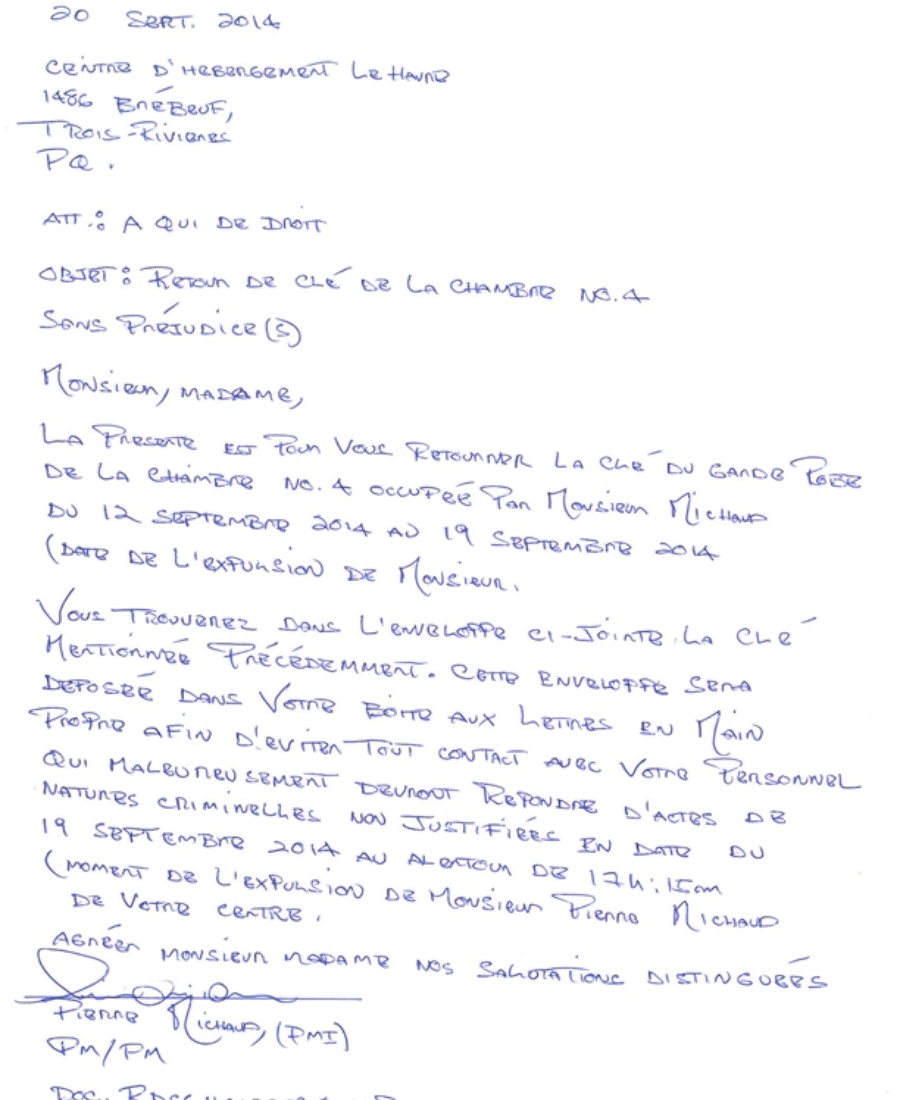 20 SEPT. 2014
CENTRE D'HEBERGEMENT LE HAVRE
1486 BRÉBEUF,
TROIS-RIVIERES
PQ.
ATT.: A QUI DE DROIT
OBJET: RETOUR DE CLÉ DE LA CHAMBRE NO. 4
SANS PRÉJUDICE(S)
MONSIEUR, MADAME,
LA PRESENTE EST POUR VOUS RETOURNER LA CLÉ DU GARDE ROBE
DE LA CHAMBRE NO. 4 OCCUPEÉ PAR MONSIEUR MICHAUD
DU 12 SEPTEMBRE 2014 AU 19 SEPTEMBRE 2014
(DATE DE L'EXPULSION DE MONSIEUR.
VOUS TROUVEREZ DANS L'ENVELOPPE CI-JOINTE LA CLÉ
MENTIONNÉE PRÉCÉDEMMENT. CETTE ENVELOPPE SERA
DEPOSÉE DANS VOTRE BOITE AUX LETTRES EN MAIN
PROPRE AFIN D'EVITER TOUT CONTACT AVEC VOTRE PERSONNEL
QUI MALEUREUSEMENT DEVRONT REPONDRE D'ACTES DE
NATURES CRIMINELLES NON JUSTIFIÉES EN DATE DU
19 SEPTEMBRE 2014 AU ALENTOUR DE 17h:15
(MOMENT DE L'EXPULSION DE MONSIEUR PIERRE MICHAUD
DE VOTRE CENTRE.
AGRÉER MONSIEUR MADAME NOS SALUTATIONS DISTINGUÉES
PIERRE MICHAUD, (PMI)
PM/PM